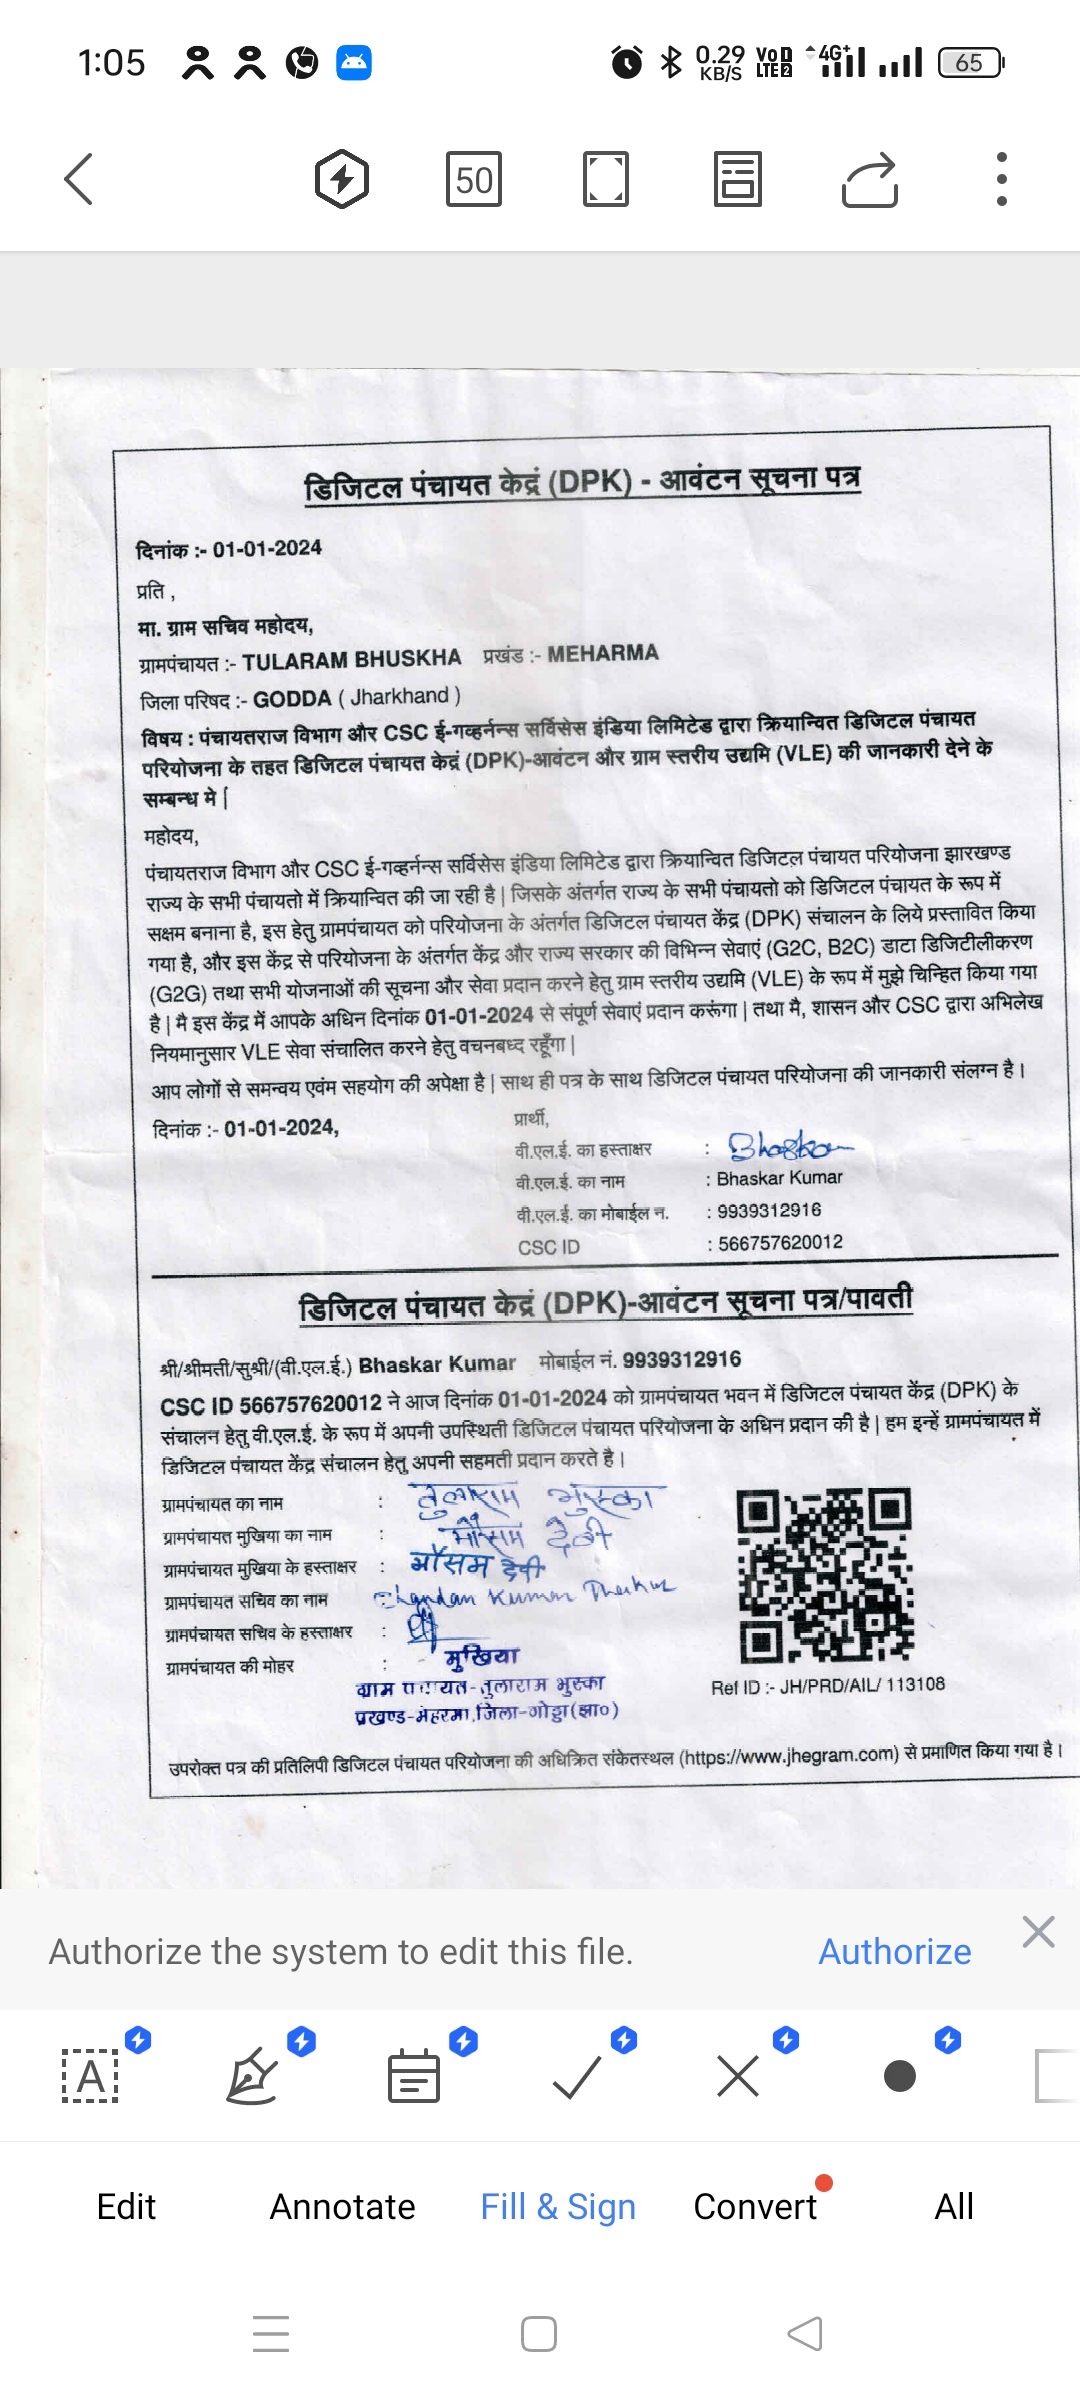 1:05
0.29 KB/S
VoD LTE2
4G+
65
50
डिजिटल पंचायत केद्रं (DPK) - आवंटन सूचना पत्र
दिनांक :- 01-01-2024
प्रति ,
मा. ग्राम सचिव महोदय,
ग्रामपंचायत :- TULARAM BHUSKHA प्रखंड :- MEHARMA
जिला परिषद :- GODDA ( Jharkhand )
विषय : पंचायतराज विभाग और CSC ई-गव्हर्नन्स सर्विसेस इंडिया लिमिटेड द्वारा क्रियान्वित डिजिटल पंचायत
परियोजना के तहत डिजिटल पंचायत केद्रं (DPK)-आवंटन और ग्राम स्तरीय उद्यमि (VLE) की जानकारी देने के
सम्बन्ध मे |
महोदय,
पंचायतराज विभाग और CSC ई-गव्हर्नन्स सर्विसेस इंडिया लिमिटेड द्वारा क्रियान्वित डिजिटल पंचायत परियोजना झारखण्ड
राज्य के सभी पंचायतो में क्रियान्वित की जा रही है | जिसके अंतर्गत राज्य के सभी पंचायतो को डिजिटल पंचायत के रूप में
सक्षम बनाना है, इस हेतु ग्रामपंचायत को परियोजना के अंतर्गत डिजिटल पंचायत केंद्र (DPK) संचालन के लिये प्रस्तावित किया
गया है, और इस केंद्र से परियोजना के अंतर्गत केंद्र और राज्य सरकार की विभिन्न सेवाएं (G2C, B2C) डाटा डिजिटीलीकरण
(G2G) तथा सभी योजनाओं की सूचना और सेवा प्रदान करने हेतु ग्राम स्तरीय उद्यमि (VLE) के रूप में मुझे चिन्हित किया गया
है | मै इस केंद्र में आपके अधिन दिनांक 01-01-2024 से संपूर्ण सेवाएं प्रदान करूंगा | तथा मै, शासन और CSC द्वारा अभिलेख
नियमानुसार VLE सेवा संचालित करने हेतु वचनबध्द रहूँगा |
आप लोगों से समन्वय एवंम सहयोग की अपेक्षा है | साथ ही पत्र के साथ डिजिटल पंचायत परियोजना की जानकारी संलग्न है ।
दिनांक :- 01-01-2024,
प्रार्थी,
वी.एल.ई. का हस्ताक्षर : Bhaskar
वी.एल.ई. का नाम : Bhaskar Kumar
वी.एल.ई. का मोबाईल न. : 9939312916
CSC ID : 566757620012
डिजिटल पंचायत केद्रं (DPK)-आवंटन सूचना पत्र/पावती
श्री/श्रीमती/सुश्री/(वी.एल.ई.) Bhaskar Kumar मोबाईल नं. 9939312916
CSC ID 566757620012 ने आज दिनांक 01-01-2024 को ग्रामपंचायत भवन में डिजिटल पंचायत केंद्र (DPK) के
संचालन हेतु वी.एल.ई. के रूप में अपनी उपस्थिती डिजिटल पंचायत परियोजना के अधिन प्रदान की है | हम इन्हें ग्रामपंचायत में
डिजिटल पंचायत केंद्र संचालन हेतु अपनी सहमती प्रदान करते है ।
ग्रामपंचायत का नाम : तुलाराम भुस्का
ग्रामपंचायत मुखिया का नाम : मौसम देवी
ग्रामपंचायत मुखिया के हस्ताक्षर : मौसम देवी
ग्रामपंचायत सचिव का नाम : Chandan Kumar Thakur
ग्रामपंचायत सचिव के हस्ताक्षर :
ग्रामपंचायत की मोहर : मुखिया
ग्राम पंचायत-तुलाराम भुस्का
प्रखण्ड-मेहरमा,जिला-गोड्डा(झा०)
Ref ID :- JH/PRD/AIL/ 113108
उपरोक्त पत्र की प्रतिलिपी डिजिटल पंचायत परियोजना की अधिक्रित संकेतस्थल (https://www.jhegram.com) से प्रमाणित किया गया है ।
Authorize the system to edit this file.
Authorize
A
Edit
Annotate
Fill & Sign
Convert
All